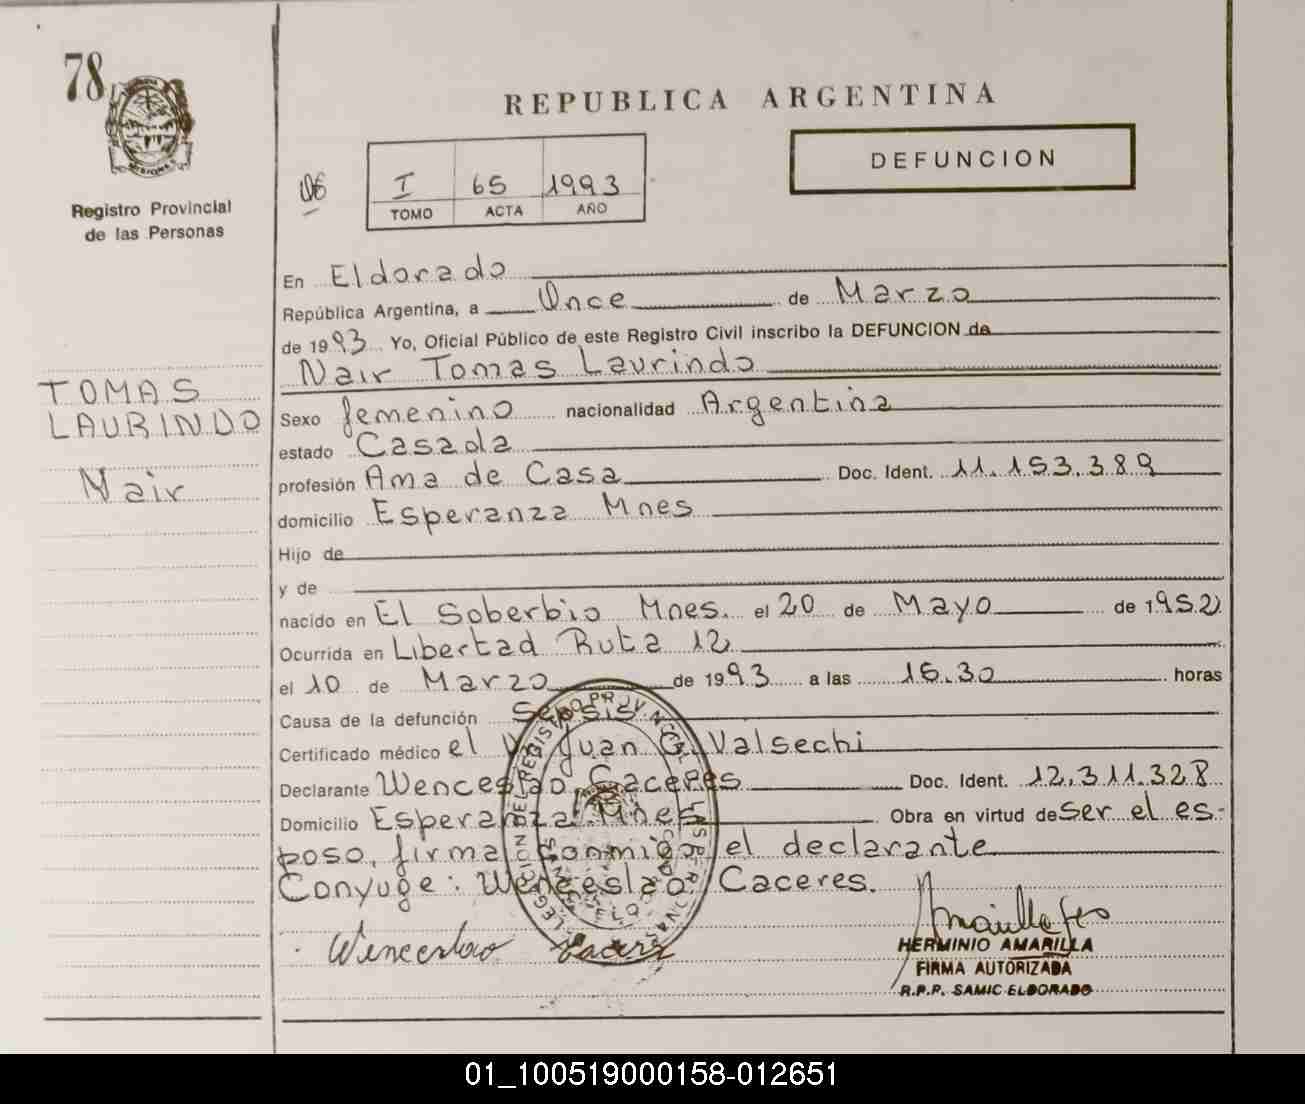 78
REPUBLICA ARGENTINA
DEFUNCION
MISIONES
Registro Provincial
de las Personas
I 65 1993
TOMO ACTA AÑO
En Eldorado
República Argentina, a Once de Marzo
de 1993 Yo, Oficial Público de este Registro Civil inscribo la DEFUNCION de
Nair Tomas Laurindo
TOMAS
LAURINDO
Nair
Sexo femenino nacionalidad Argentina
estado Casada
profesión Ama de Casa Doc. Ident. 11.153.389
domicilio Esperanza Mnes
Hijo de
y de
nacido en El Soberbio Mnes. el 20 de Mayo de 1952
Ocurrida en Libertad Ruta 12
el 10 de Marzo de 1993 a las 15.30 horas
Causa de la defunción Sepsis
Certificado médico el Juan G. Valsechi
Declarante Wenceslao Caceres Doc. Ident. 12.311.328
Domicilio Esperanza Mnes Obra en virtud de ser el es-
poso, firma conmigo el declarante
Conyuge: Wenceslao Caceres.
Wenceslao Caceres
HERMINIO AMARILLA
FIRMA AUTORIZADA
R.P.P. SAMIC ELDORADO
01_100519000158-012651